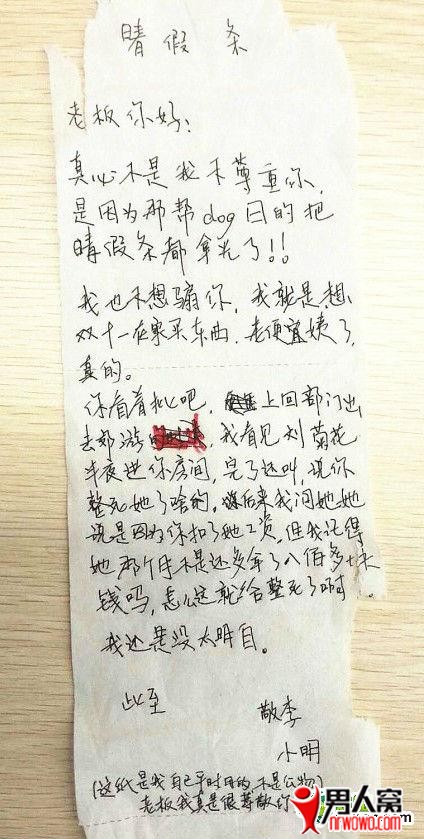 晴假条
老板你好:
真心不是我不尊重你,
是因为那帮dog日的把
晴假条都拿光了!!
我也不想骗你,我就是想
双十一在家买东西,老便宜姨了,
真的。
你看着批吧,上回部门出
去郊游,我看见刘菊花
半夜进你房间,完了还叫,说你
整死她了啥的,后来我问她她
说是因为你扣了她工资,但我记得
她那个月不是还多拿了八佰多块
钱吗,怎么这就给整死了啊
我还是没太明白。
此至
敬李
小明
(这纸是我自己平时用的,不是公物)
老板我真是很尊敬你
男人窝
nrwowo.com